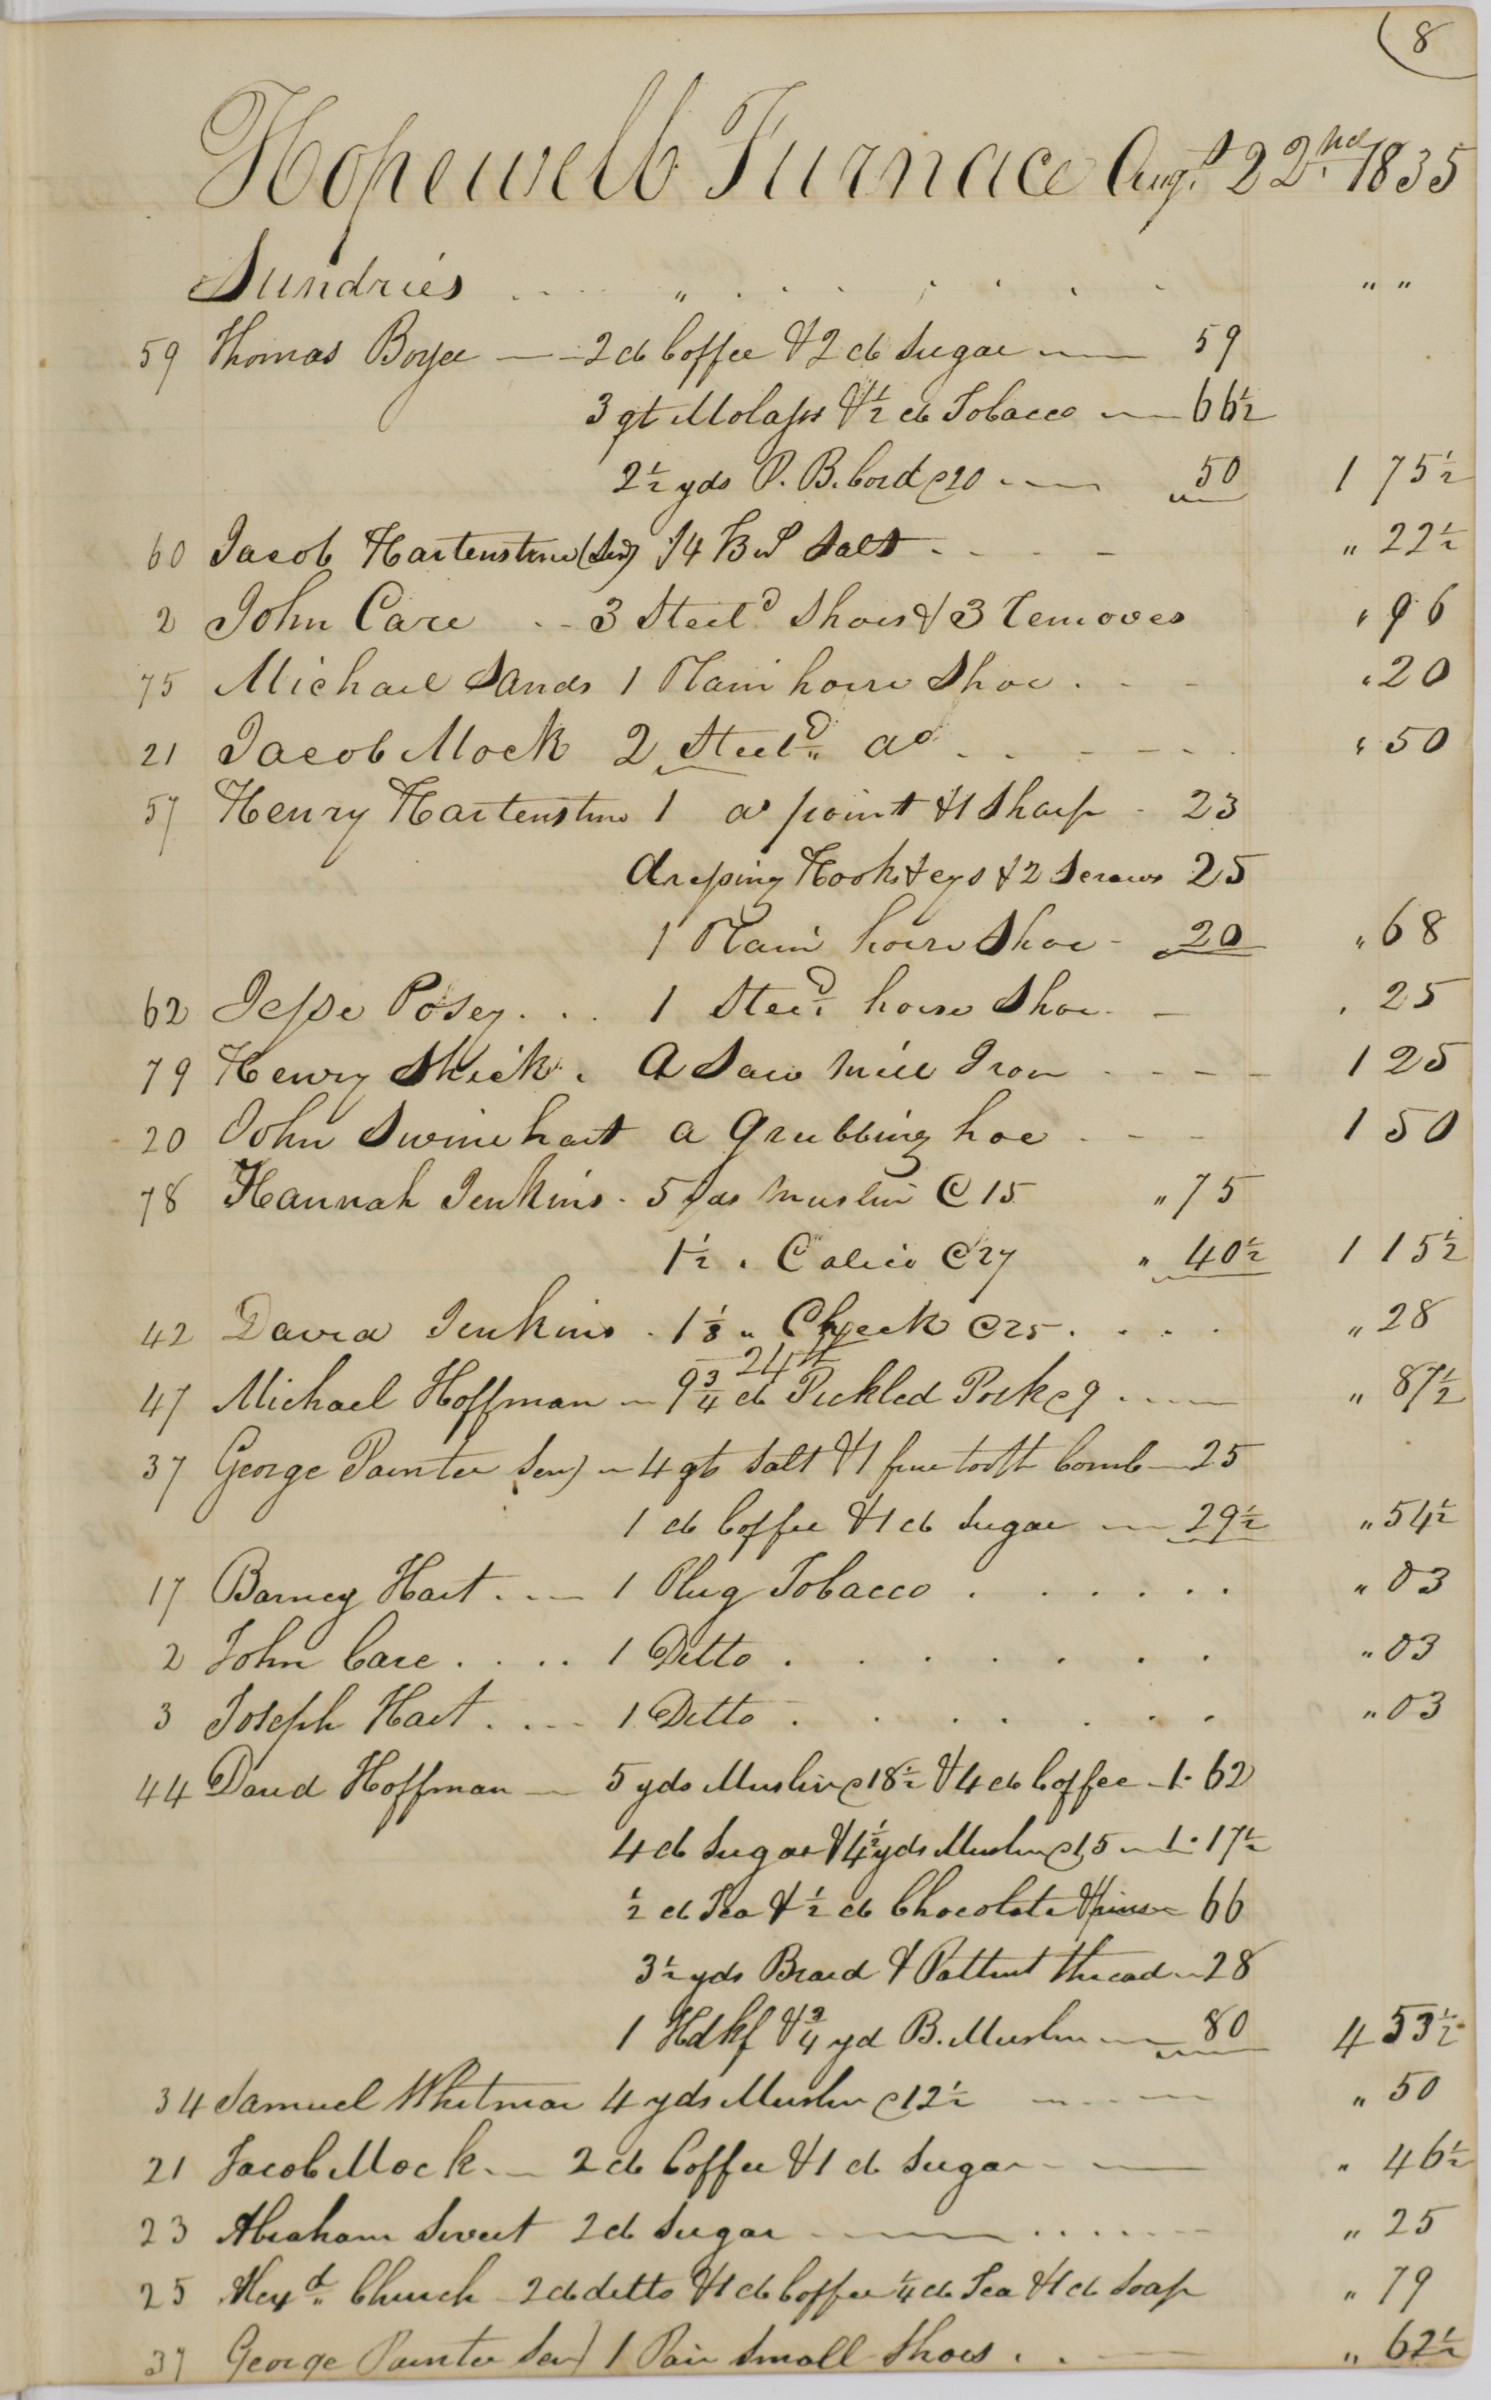 8
Hopewell Furnace Augt 22nd 1835
Sundries . . . . „ . . . . . . . „ „
59 Thomas Boyer — 2 lb Coffee & 2 lb Sugar — 59
3 qt Molasses & ½ lb Tobacco — 66½
2½ yds P. B. Cord @20 — 50 1 75½
60 Jacob Hartenstine (Sen) 14 lbs Salt . - - - „ 22½
2 John Care - - 3 Steeld Shoes & 3 Removes „ 96
75 Michael Sands 1 Plain horse Shoe . - - „ 20
21 Jacob Mock 2 Steeld do . . - - - „ 50
57 Henry Hartenstine 1 do point & 1 Sharp - 23
dressing Hooks & eyes & 2 Screws 25
1 Plain horse Shoe - 20 „ 68
62 Jesse Posey . . . 1 Steeld horse Shoe - „ 25
79 Henry Shick . A Saw Mill Iron - - - - 1 25
20 John Swinehart a Grubbing hoe - - - 1 50
78 Hannah Jenkins - 5 Yds Muslin @ 15 „ 75
1½ „ Calico @ 27 „ 40½ 1 15½
42 David Jenkins . 1⅛ „ Check @ 25 . . . . „ 28
24th
47 Michael Hoffman — 9¾ lb Pickled Pork @9 . — „ 87½
37 George Painter Sen) — 4 qts Salt & 1 fine tooth Comb — 25
1 lb Coffee & 1 lb Sugar — 29½ „ 54½
17 Barney Hart . . — 1 Plug Tobacco . . . . . . „ 03
2 John Care . . . . 1 Ditto . . . . . . . „ 03
3 Joseph Hart . . . - 1 Ditto . . . . . . . „ 03
44 David Hoffman — 5 yds Muslin @18½ & 4 lb Coffee — 1.62
4 lb Sugar & 4½ yds Muslin @15 — 1.17½
½ lb Tea & ½ lb Chocolate & pins — 66
3½ yds Braid & Pattent thread — 28
1 Hdkf & ¾ yd B. Muslin — 80 4 53½
34 Samuel Whitman 4 yds Muslin @12½ — — „ 50
21 Jacob Mock . — 2 lb Coffee & 1 lb Sugar — — „ 46½
23 Abraham Sweet 2 lb Sugar — . . . . . „ 25
25 Alexd Church - 2 lb ditto & 1 lb Coffee ¼ lb Tea & 1 lb Soap „ 79
37 George Painter Sen) 1 Pair Small Shoes . . — „ 62½